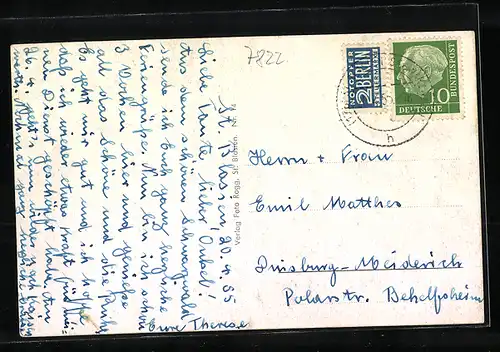 7822
St. Blasien, 20.4.55
Liebe Tante, lieber Onkel!
Aus dem schönen Schwarzwald
sende ich Euch ganz herzliche
Feriengrüße. Nun bin ich schon
3 Wochen hier und genieße
all das Schöne und die Ruhe.
Es geht mir gut und ich hoffe,
daß ich wieder etwas Kraft für mei-
nen Dienst geschöpft habe, den
26.4. geht's nun wieder nach
Nehmt ganz herzliche Grüße
Eure Therese
Verlag Foto Ragg, St. Blasien. Nr.
NOTOPFER
2 BERLIN
STEUERMARKE
DEUTSCHE
BUNDESPOST
10
h
Herrn + Frau
Emil Matthes
Duisburg-Meiderich
Polarstr. Behelfsheim